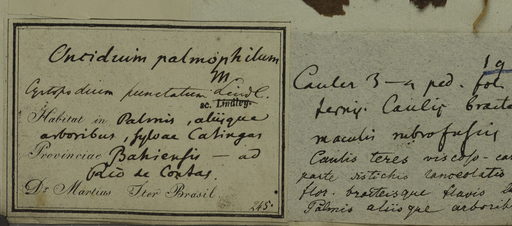 Oncidium palmophilum
M.
Cyrtopodium punctatum Lindl.
sc. Lindley.
Habitat in Palmis, aliisque
arboribus, sylvae Catingas
Provinciae Bahiensis — ad
Rio de Contas.
Dr. Martius Iter Brasil.
245.
19
Caules 3-4 ped. fol.
Caulis bracte
maculis rubrofuscis
Caulis teres viscoso-
parte distichis lanceolatis
flor. bracteisque flavis
Palmis aliisque arborib